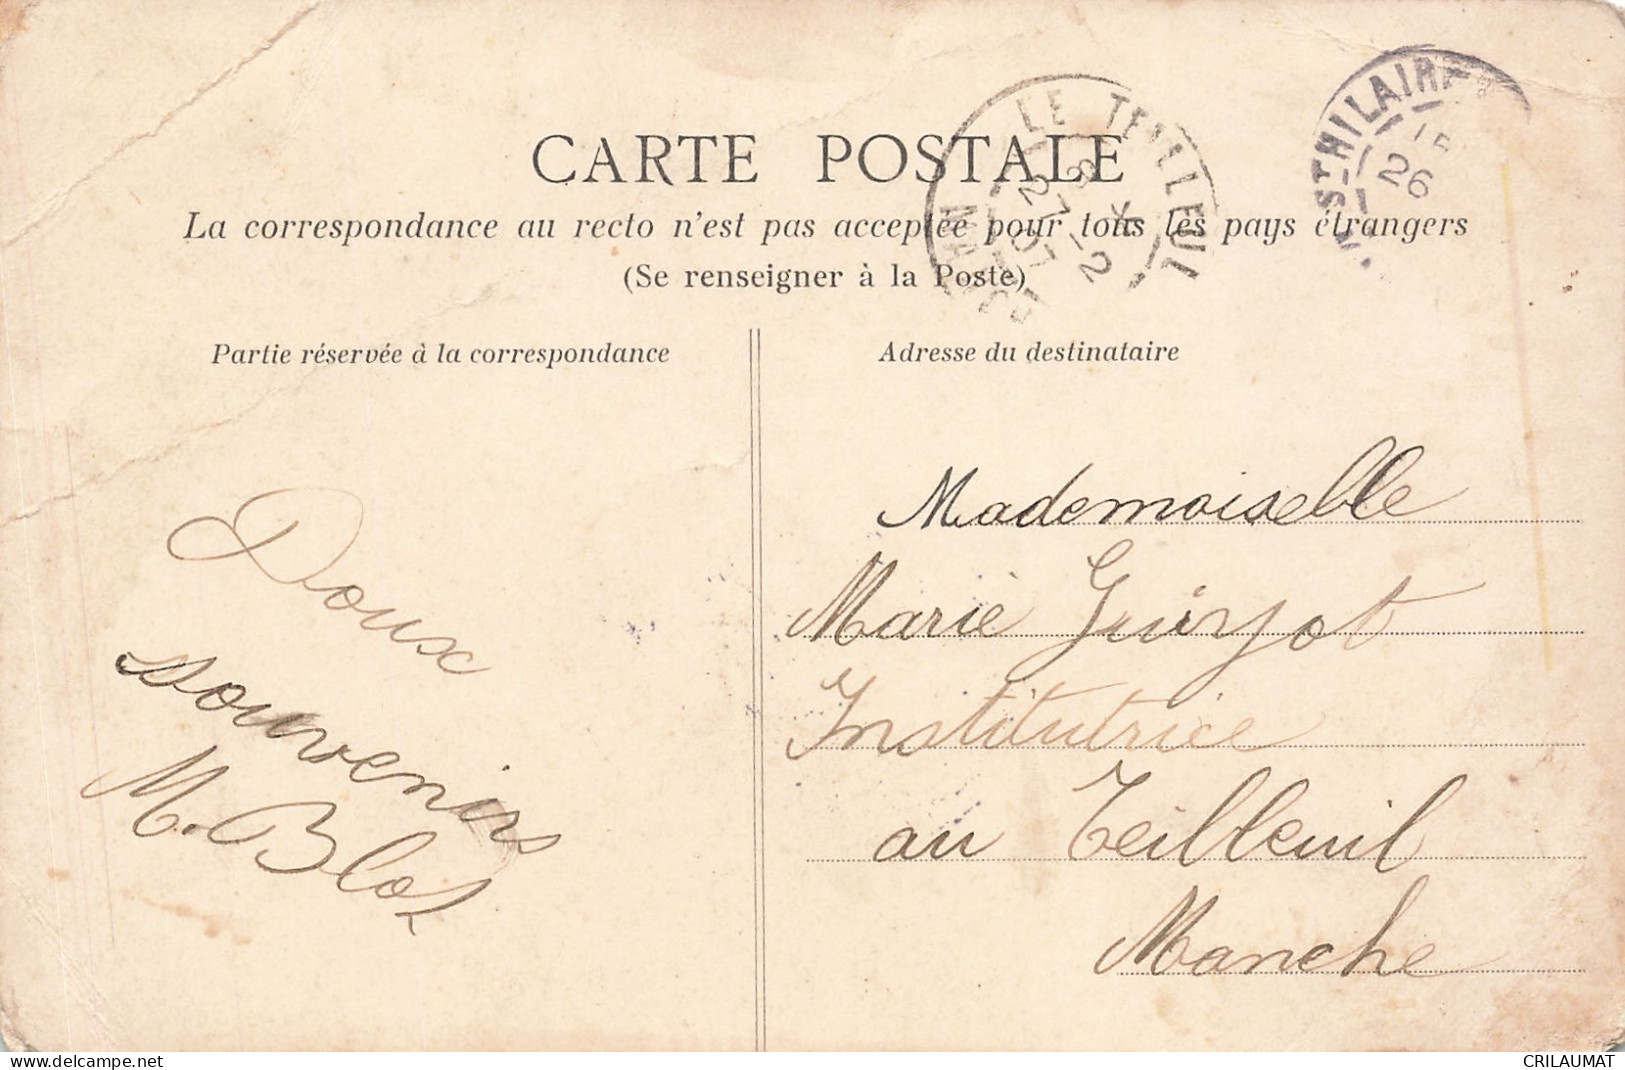 CARTE POSTALE
La correspondance au recto n'est pas acceptée pour tous les pays étrangers
(Se renseigner à la Poste)
Partie réservée à la correspondance
Adresse du destinataire
LE TEILLEUL
27
07
ST HILAIRE
26
Doux
souvenirs
M. Blot
Mademoiselle
Marie Guizot
Institutrice
au Teilleuil
Manche
www.delcampe.net
CRILAUMAT